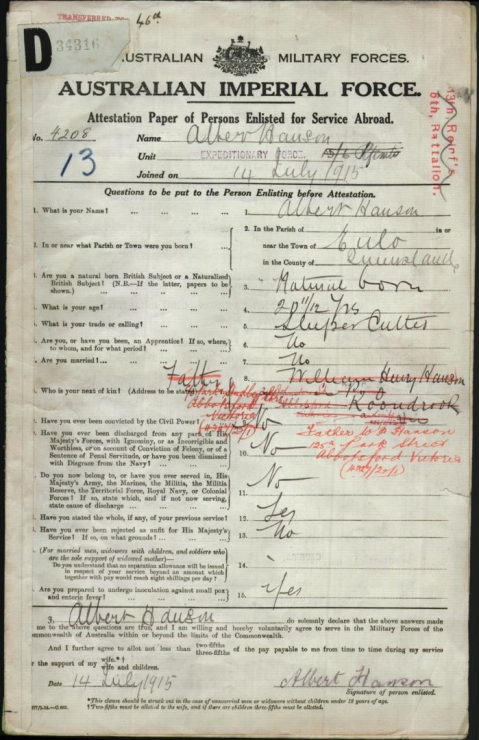 TRANSFERRED TO 46th
D 34316
AUSTRALIAN MILITARY FORCES.
AUSTRALIAN IMPERIAL FORCE.
Attestation Paper of Persons Enlisted for Service Abroad.
No. 4208 Name Albert Hanson
13 Unit EXPEDITIONARY FORCE.
Joined on 14 July 1915
13th Reinf's
8th, Battalion
Questions to be put to the Person Enlisting before Attestation.
1. What is your Name? 1. Albert Hanson
2. In the Parish of is or
2. In or near what Parish or Town were you born? near the Town of Eulo
in the County of Queensland
3. Are you a natural born British Subject or a Naturalized
British Subject? (N.B.—If the latter, papers to be
shown.) 3. Natural born
4. What is your age? 4. 20 11/12 yrs
5. What is your trade or calling? 5. Sleeper Cutter
6. Are you, or have you been, an Apprentice? If so, where,
to whom, and for what period? 6. No
7. Are you married? 7. No
8. Who is your next of kin? (Address to be stated) Father 8. William Henry Hanson
Abbotsford
Victoria
Father W H Hanson
Park Street
Abbotsford Victoria
9. Have you ever been convicted by the Civil Power? 9. No
10. Have you ever been discharged from any part of His
Majesty's Forces, with Ignominy, or as Incorrigible and
Worthless, or on account of Conviction of Felony, or of a
Sentence of Penal Servitude, or have you been dismissed
with Disgrace from the Navy? 10. No
11. Do you now belong to, or have you ever served in, His
Majesty's Army, the Marines, the Militia, the Militia
Reserve, the Territorial Force, Royal Navy, or Colonial
Forces? If so, state which, and if not now serving,
state cause of discharge 11. No
12. Have you stated the whole, if any, of your previous service? 12. Yes
13. Have you ever been rejected as unfit for His Majesty's
Service? If so, on what grounds? 13. No
14. (For married men, widowers with children, and soldiers who
are the sole support of widowed mother)—
Do you understand that no separation allowance will be issued
in respect of your service beyond an amount which
together with pay would reach eight shillings per day? 14.
15. Are you prepared to undergo inoculation against small pox
and enteric fever? 15. Yes
I, Albert Hanson do solemnly declare that the above answers made
by me to the above questions are true, and I am willing and hereby voluntarily agree to serve in the Military Forces of the
Commonwealth of Australia within or beyond the limits of the Commonwealth.
And I further agree to allot not less than two-fifths three-fifths of the pay payable to me from time to time during my service
for the support of my wife.*† wife and children.
Date 14 July 1915 Albert Hanson
Signature of person enlisted.
*This clause should be struck out in the case of unmarried men or widowers without children under 18 years of age.
†Two-fifths must be allotted to the wife, and if there are children three-fifths must be allotted.